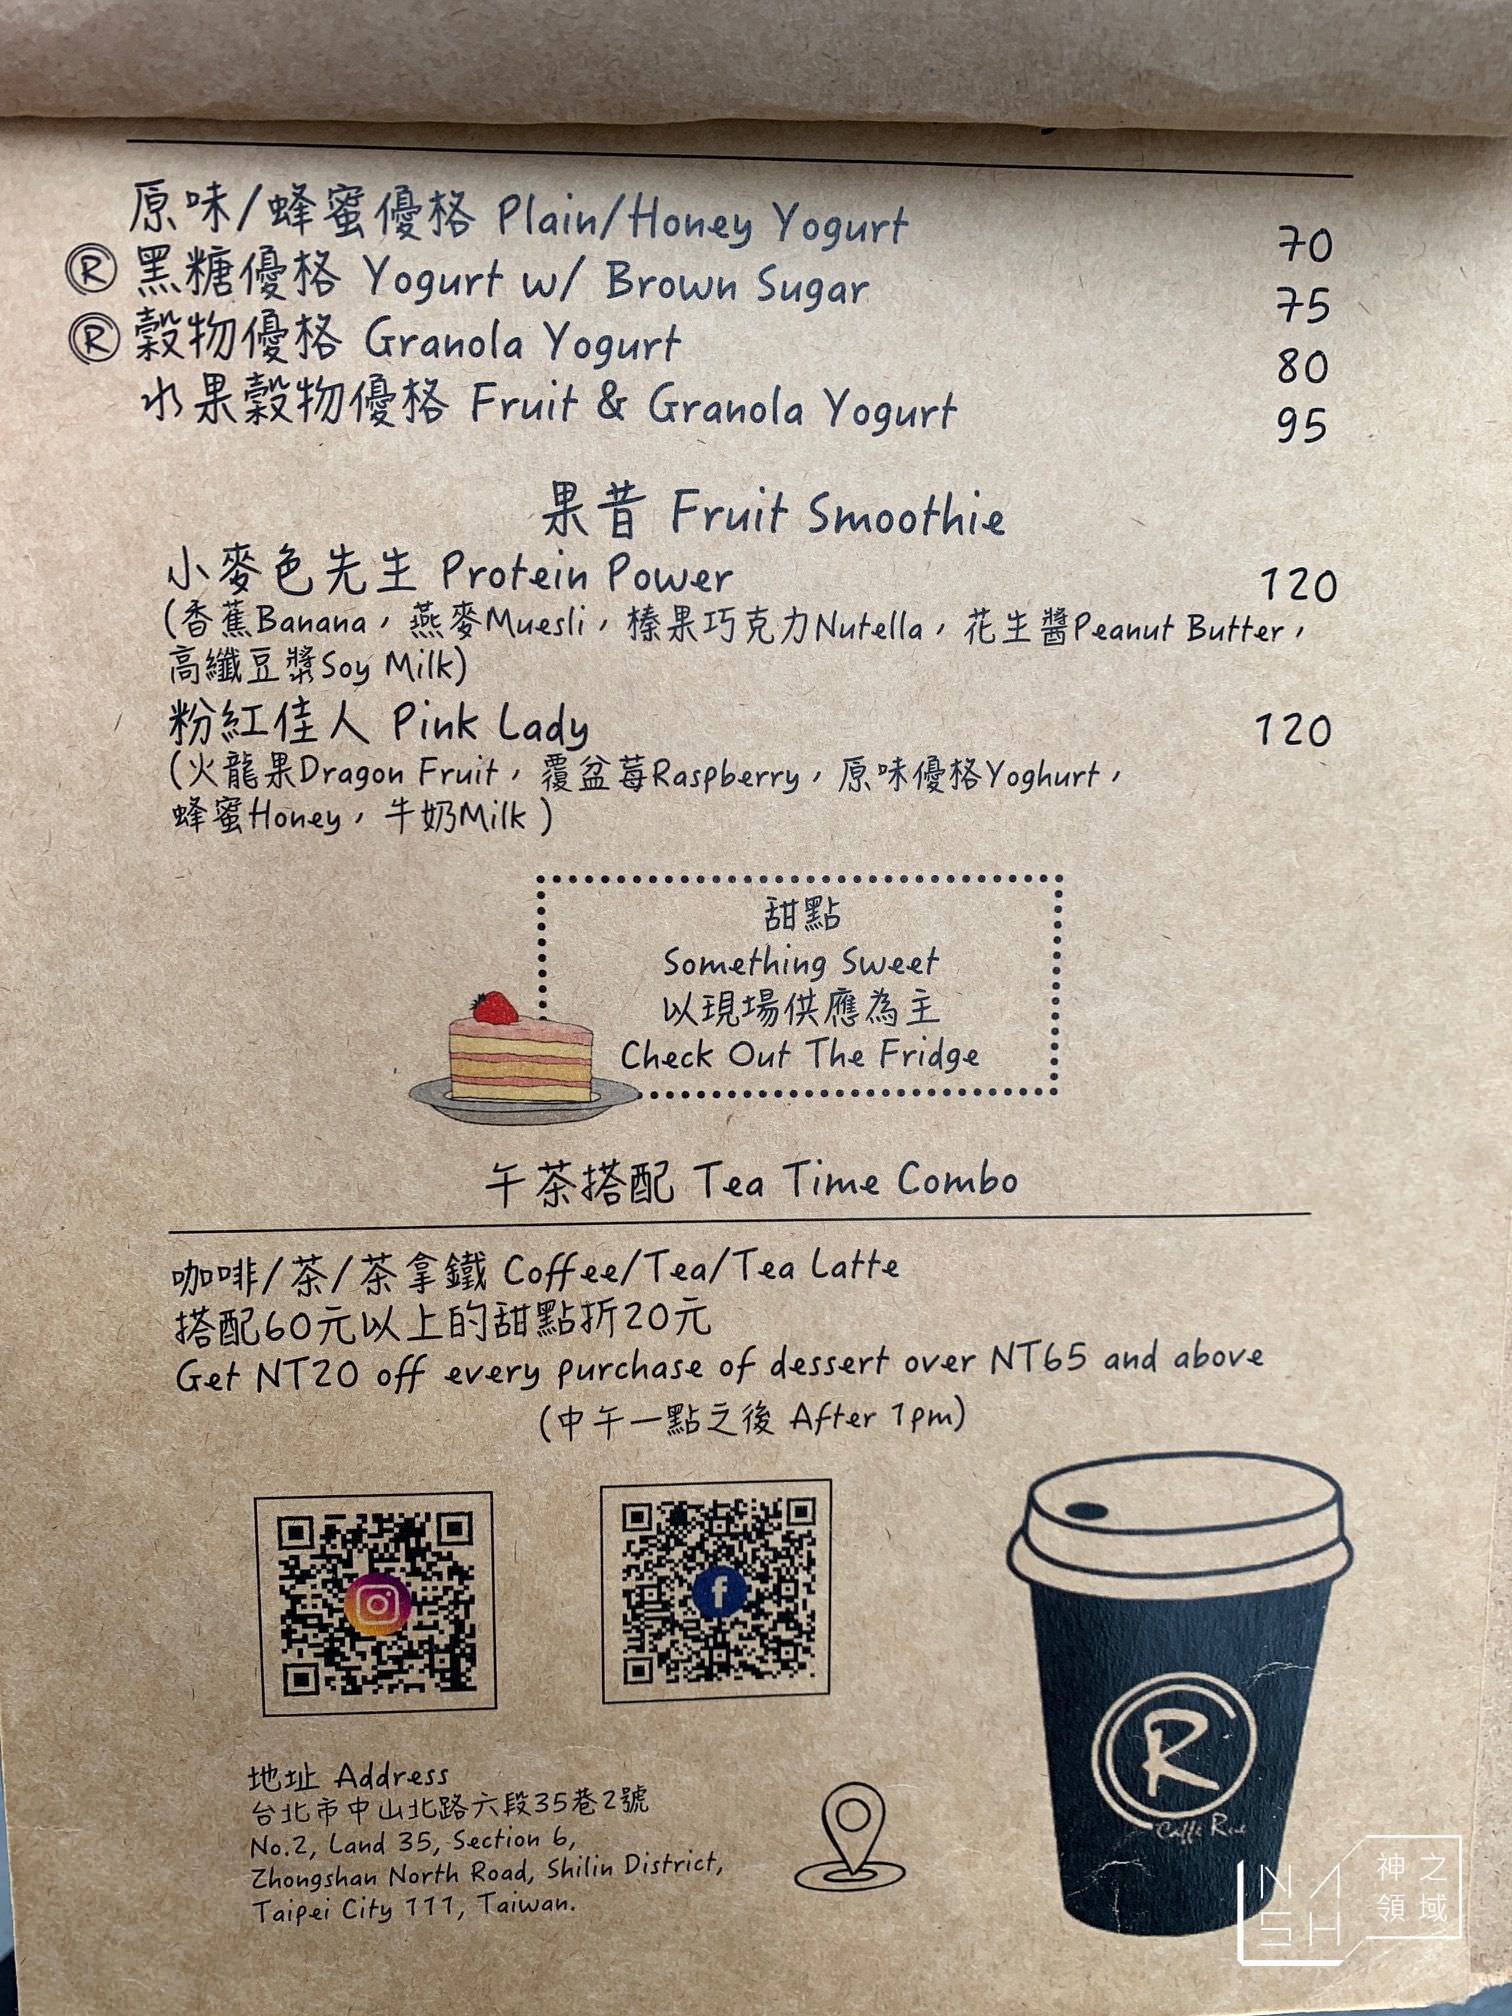 原味/蜂蜜優格 Plain/Honey Yogurt 70
Ⓡ 黑糖優格 Yogurt w/ Brown Sugar 75
Ⓡ 穀物優格 Granola Yogurt 80
水果穀物優格 Fruit & Granola Yogurt 95
果昔 Fruit Smoothie
小麥色先生 Protein Power 120
(香蕉Banana，燕麥Muesli，榛果巧克力Nutella，花生醬Peanut Butter，
高纖豆漿Soy Milk)
粉紅佳人 Pink Lady 120
(火龍果Dragon Fruit，覆盆莓Raspberry，原味優格Yoghurt，
蜂蜜Honey，牛奶Milk )
甜點
Something Sweet
以現場供應為主
Check Out The Fridge
午茶搭配 Tea Time Combo
咖啡/茶/茶拿鐵 Coffee/Tea/Tea Latte
搭配60元以上的甜點折20元
Get NT20 off every purchase of dessert over NT65 and above
(中午一點之後 After 1pm)
地址 Address
台北市中山北路六段35巷2號
No.2, Land 35, Section 6,
Zhongshan North Road, Shilin District,
Taipei City 111, Taiwan.
R
Caffé
NASH
神之
領域